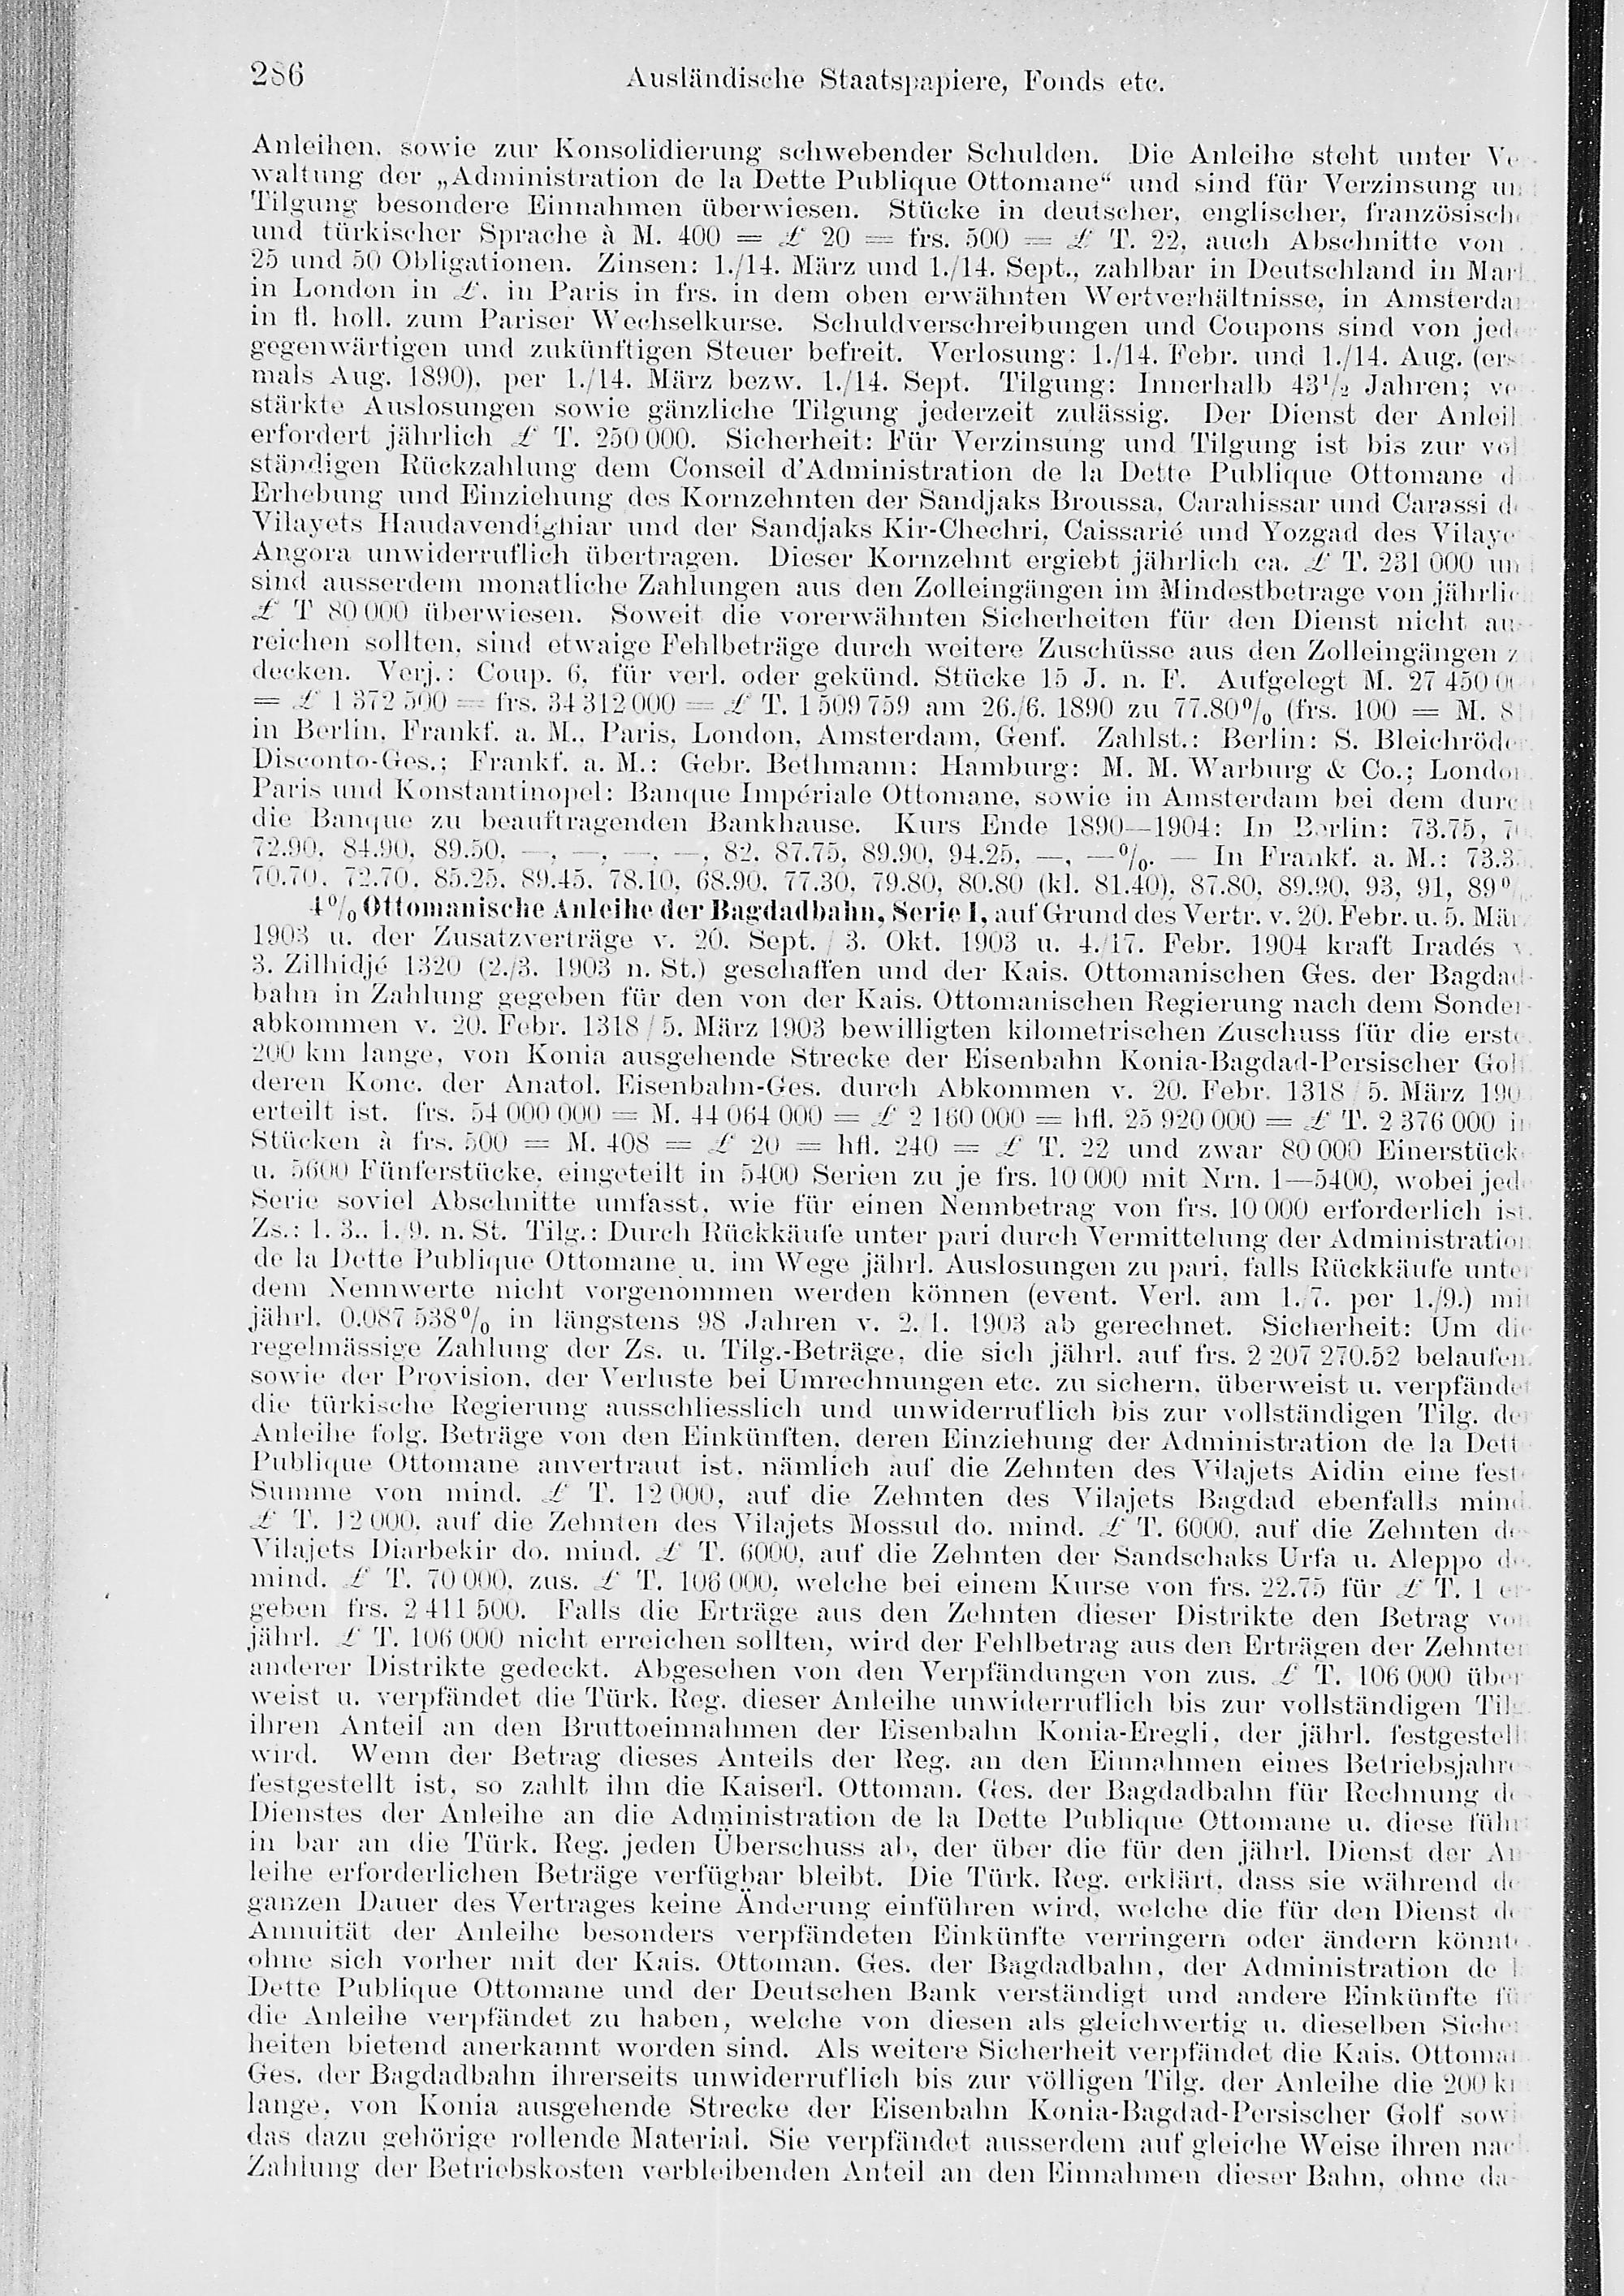 286 Ausländische Staatspapiere, Fonds etc.
Anleihen, sowie zur Konsolidierung schwebender Schulden. Die Anleihe steht unter Ve
waltung der „Administration de la Dette Publique Ottomane“ und sind für Verzinsung un
Tilgung besondere Einnahmen überwiesen. Stücke in deutscher, englischer, französisch
und türkischer Sprache à M. 400 = £ 20 = frs. 500 = £ T. 22, auch Abschnitte von
25 und 50 Obligationen. Zinsen: 1./14. März und 1./14. Sept., zahlbar in Deutschland in Mar
in London in £, in Paris in frs. in dem oben erwähnten Wertverhältnisse, in Amsterda
in fl. holl. zum Pariser Wechselkurse. Schuldverschreibungen und Coupons sind von jed
gegenwärtigen und zukünftigen Steuer befreit. Verlosung: 1./14. Febr. und 1./14. Aug. (ers
mals Aug. 1890), per 1./14. März bezw. 1./14. Sept. Tilgung: Innerhalb 43½ Jahren; ve
stärkte Auslosungen sowie gänzliche Tilgung jederzeit zulässig. Der Dienst der Anleil
erfordert jährlich £ T. 250 000. Sicherheit: Für Verzinsung und Tilgung ist bis zur vol
ständigen Rückzahlung dem Conseil d'Administration de la Dette Publique Ottomane d
Erhebung und Einziehung des Kornzehnten der Sandjaks Broussa, Carahissar und Carassi d
Vilayets Haudavendighiar und der Sandjaks Kir-Chechri, Caissarié und Yozgad des Vilaye
Angora unwiderruflich übertragen. Dieser Kornzehnt ergiebt jährlich ca. £ T. 231 000 un
sind ausserdem monatliche Zahlungen aus den Zolleingängen im Mindestbetrage von jährlic
£ T 80 000 überwiesen. Soweit die vorerwähnten Sicherheiten für den Dienst nicht au
reichen sollten, sind etwaige Fehlbeträge durch weitere Zuschüsse aus den Zolleingängen z
decken. Verj.: Coup. 6, für verl. oder gekünd. Stücke 15 J. n. F. Aufgelegt M. 27 450 00
= £ 1 372 500 = frs. 34 312 000 = £ T. 1 509 759 am 26./6. 1890 zu 77.80% (frs. 100 = M. 8
in Berlin, Frankf. a. M., Paris, London, Amsterdam, Genf. Zahlst.: Berlin: S. Bleichröde
Disconto-Ges.; Frankf. a. M.: Gebr. Bethmann; Hamburg: M. M. Warburg & Co.; London
Paris und Konstantinopel: Banque Impériale Ottomane, sowie in Amsterdam bei dem durc
die Banque zu beauftragenden Bankhause. Kurs Ende 1890—1904: In Berlin: 73.75, 7
72.90, 84.90, 89.50, —, —, —, —, 82, 87.75, 89.90, 94.25, —, —%. — In Frankf. a. M.: 73.3
70.70, 72.70, 85.25, 89.45, 78.10, 68.90, 77.30, 79.80, 80.80 (kl. 81.40), 87.80, 89.90, 93, 91, 89%
4% Ottomanische Anleihe der Bagdadbahn, Serie I, auf Grund des Vertr. v. 20. Febr. u. 5. Mär
1903 u. der Zusatzverträge v. 20. Sept. / 3. Okt. 1903 u. 4./17. Febr. 1904 kraft Iradés v
3. Zilhidjé 1320 (2./3. 1903 n. St.) geschaffen und der Kais. Ottomanischen Ges. der Bagdad-
bahn in Zahlung gegeben für den von der Kais. Ottomanischen Regierung nach dem Sonder-
abkommen v. 20. Febr. 1318 / 5. März 1903 bewilligten kilometrischen Zuschuss für die erste
200 km lange, von Konia ausgehende Strecke der Eisenbahn Konia-Bagdad-Persischer Golf
deren Konc. der Anatol. Eisenbahn-Ges. durch Abkommen v. 20. Febr. 1318 / 5. März 190
erteilt ist. frs. 54 000 000 = M. 44 064 000 = £ 2 160 000 = hfl. 25 920 000 = £ T. 2 376 000 in
Stücken à frs. 500 = M. 408 = £ 20 = hfl. 240 = £ T. 22 und zwar 80 000 Einerstück
u. 5600 Fünferstücke, eingeteilt in 5400 Serien zu je frs. 10 000 mit Nrn. 1—5400, wobei jed
Serie soviel Abschnitte umfasst, wie für einen Nennbetrag von frs. 10 000 erforderlich ist.
Zs.: 1. 3., 1. 9. n. St. Tilg.: Durch Rückkäufe unter pari durch Vermittelung der Administration
de la Dette Publique Ottomane u. im Wege jährl. Auslosungen zu pari, falls Rückkäufe unter
dem Nennwerte nicht vorgenommen werden können (event. Verl. am 1./7. per 1./9.) mit
jährl. 0.087 538% in längstens 98 Jahren v. 2. 1. 1903 ab gerechnet. Sicherheit: Um die
regelmässige Zahlung der Zs. u. Tilg.-Beträge, die sich jährl. auf frs. 2 207 270.52 belaufen,
sowie der Provision, der Verluste bei Umrechnungen etc. zu sichern, überweist u. verpfändet
die türkische Regierung ausschliesslich und unwiderruflich bis zur vollständigen Tilg. der
Anleihe folg. Beträge von den Einkünften, deren Einziehung der Administration de la Dett
Publique Ottomane anvertraut ist, nämlich auf die Zehnten des Vilajets Aidin eine fest
Summe von mind. £ T. 12 000, auf die Zehnten des Vilajets Bagdad ebenfalls mind.
£ T. 12 000, auf die Zehnten des Vilajets Mossul do. mind. £ T. 6000, auf die Zehnten de
Vilajets Diarbekir do. mind. £ T. 6000, auf die Zehnten der Sandschaks Urfa u. Aleppo do.
mind. £ T. 70 000, zus. £ T. 106 000, welche bei einem Kurse von frs. 22.75 für £ T. 1 er-
geben frs. 2 411 500. Falls die Erträge aus den Zehnten dieser Distrikte den Betrag von
jährl. £ T. 106 000 nicht erreichen sollten, wird der Fehlbetrag aus den Erträgen der Zehnten
anderer Distrikte gedeckt. Abgesehen von den Verpfändungen von zus. £ T. 106 000 über
weist u. verpfändet die Türk. Reg. dieser Anleihe unwiderruflich bis zur vollständigen Tilg.
ihren Anteil an den Bruttoeinnahmen der Eisenbahn Konia-Eregli, der jährl. festgestell
wird. Wenn der Betrag dieses Anteils der Reg. an den Einnahmen eines Betriebsjahre
festgestellt ist, so zahlt ihn die Kaiserl. Ottoman. Ges. der Bagdadbahn für Rechnung de
Dienstes der Anleihe an die Administration de la Dette Publique Ottomane u. diese führ
in bar an die Türk. Reg. jeden Überschuss ab, der über die für den jährl. Dienst der An
leihe erforderlichen Beträge verfügbar bleibt. Die Türk. Reg. erklärt, dass sie während de
ganzen Dauer des Vertrages keine Änderung einführen wird, welche die für den Dienst de
Annuität der Anleihe besonders verpfändeten Einkünfte verringern oder ändern könnte
ohne sich vorher mit der Kais. Ottoman. Ges. der Bagdadbahn, der Administration de l
Dette Publique Ottomane und der Deutschen Bank verständigt und andere Einkünfte für
die Anleihe verpfändet zu haben, welche von diesen als gleichwertig u. dieselben Siche
heiten bietend anerkannt worden sind. Als weitere Sicherheit verpfändet die Kais. Ottoman
Ges. der Bagdadbahn ihrerseits unwiderruflich bis zur völligen Tilg. der Anleihe die 200 k
lange, von Konia ausgehende Strecke der Eisenbahn Konia-Bagdad-Persischer Golf sowi
das dazu gehörige rollende Material. Sie verpfändet ausserdem auf gleiche Weise ihren nac
Zahlung der Betriebskosten verbleibenden Anteil an den Einnahmen dieser Bahn, ohne da-